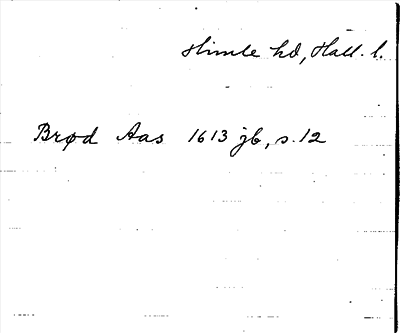 Himle hd, Hall. l.
Brød Aas 1613 jb, s. 12